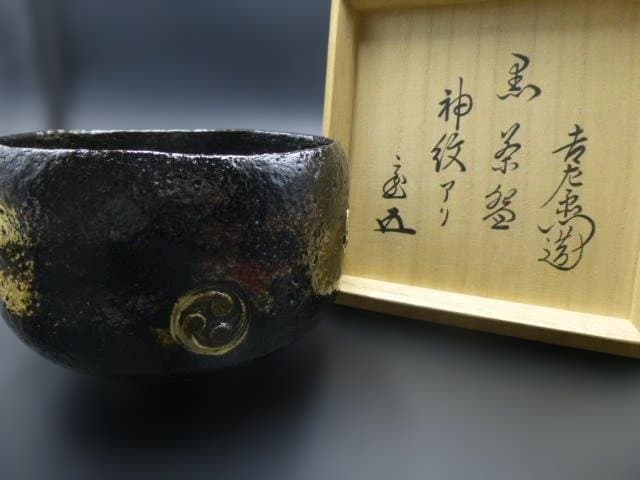 吉左衛門造
黒茶碗
神紋アリ